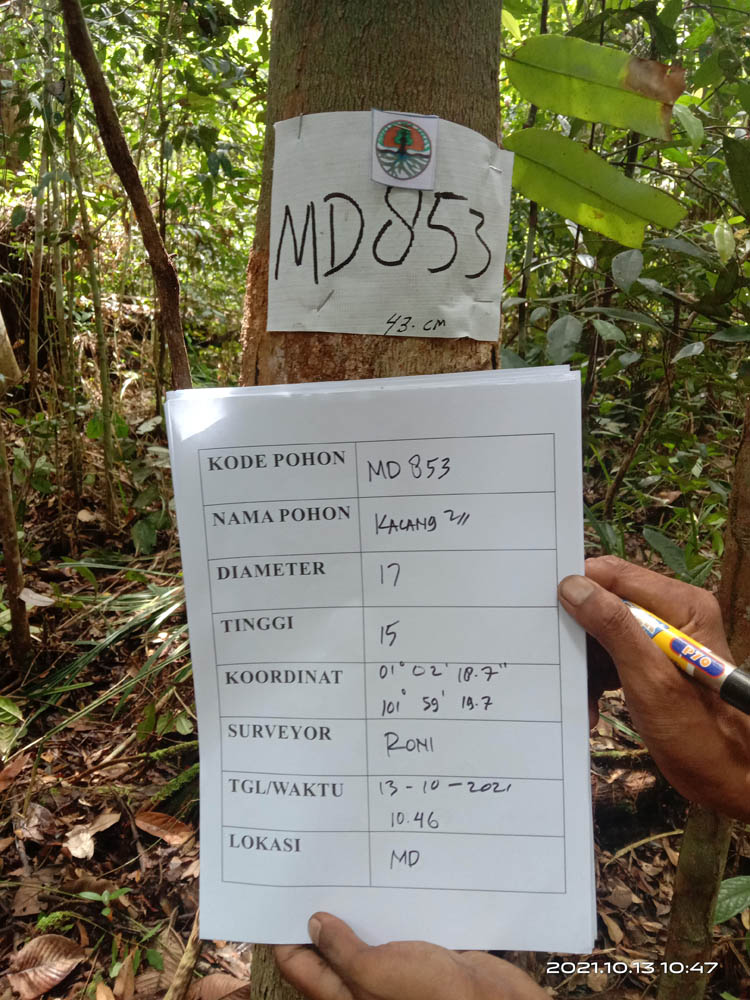 MD 853
43. CM
KODE POHON MD 853
NAMA POHON KALANG 2//
DIAMETER 17
TINGGI 15
KOORDINAT 01° 02' 18.7"
101° 59' 19.7
SURVEYOR RONI
TGL/WAKTU 13-10-2021
10.46
LOKASI MD
P70
2021.10.13 10:47